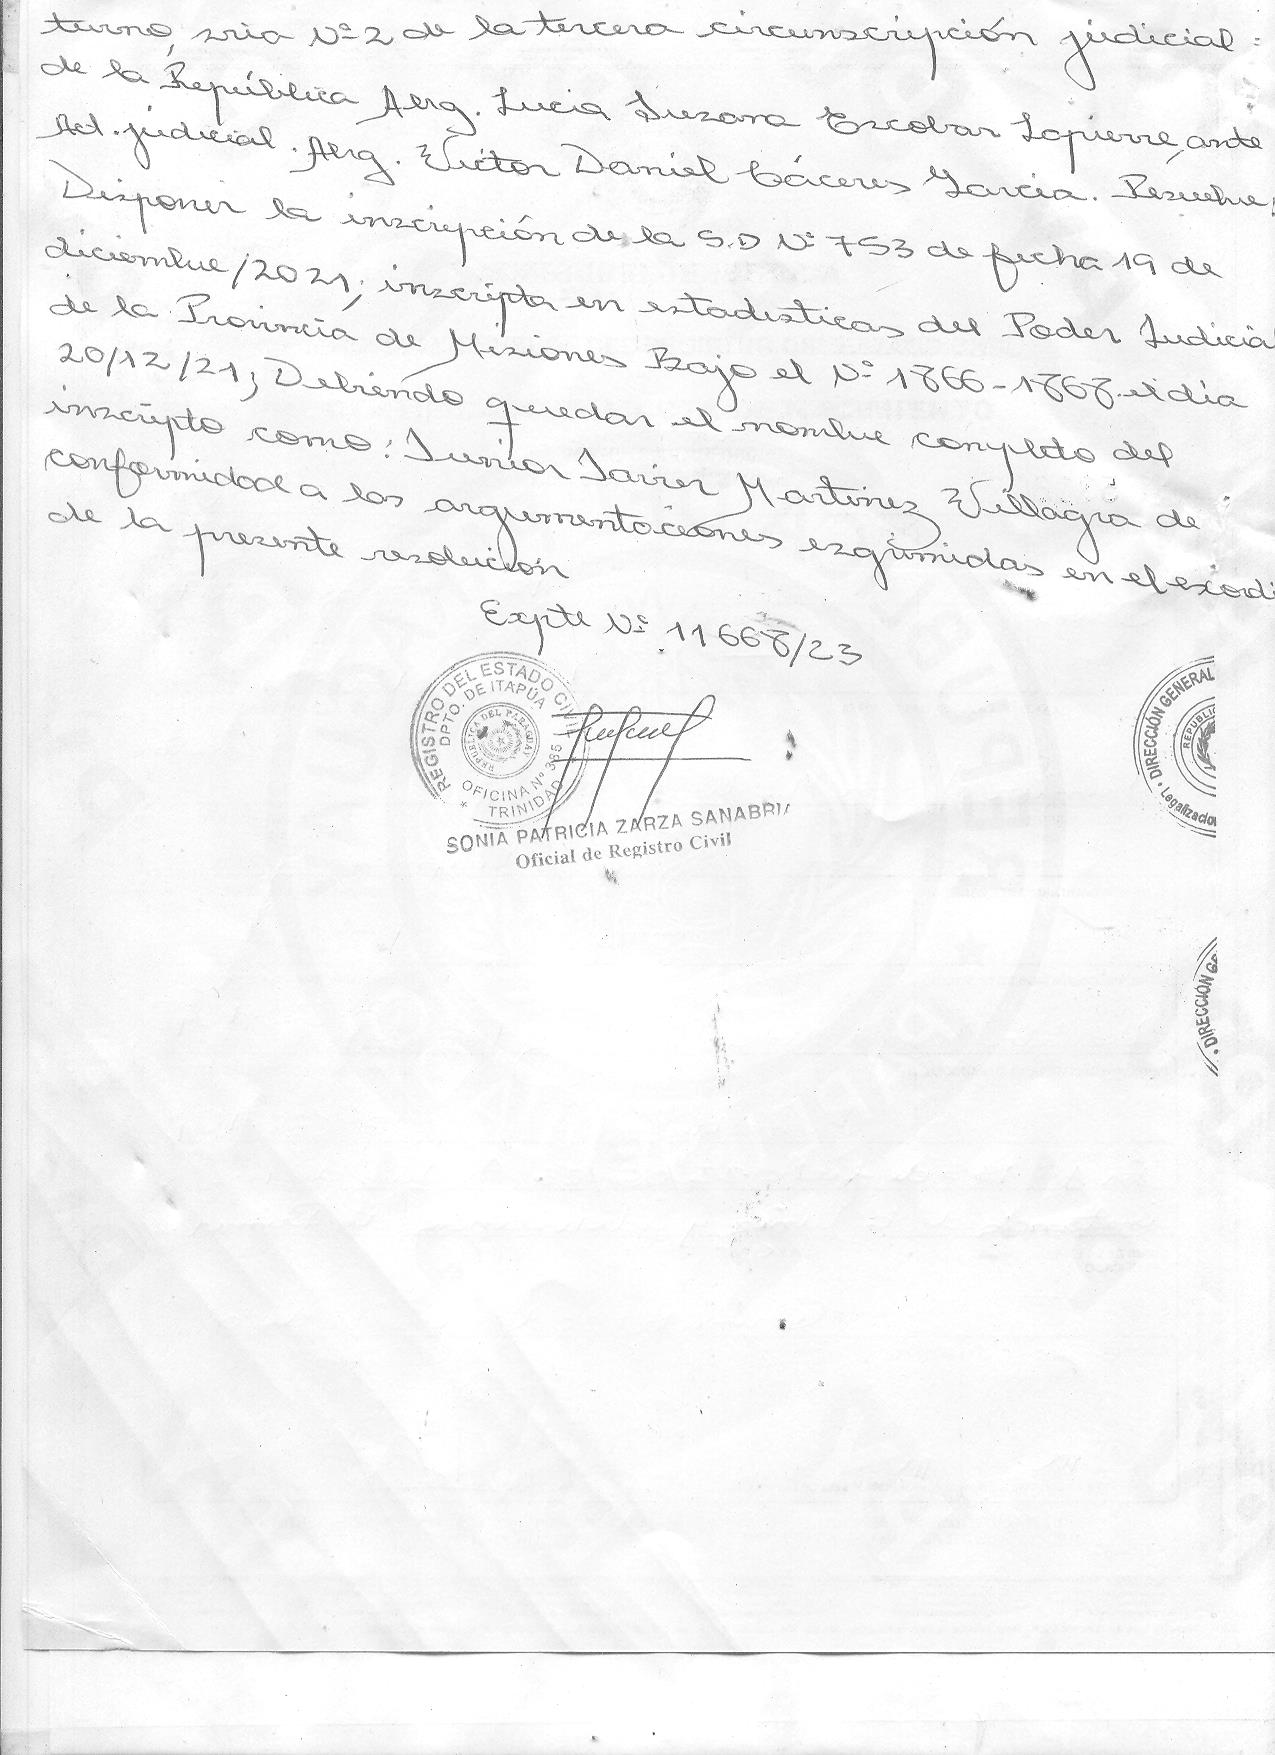 turno, sria Nº 2 de la tercera circunscripción judicial :
de la República Abg. Lucia Suzana Escobar Lapierre, ante
Act. judicial. Abg. Victor Daniel Cáceres Garcia. Resuelve:
Disponer la inscripción de la S.D Nº 753 de fecha 19 de
diciembre/2021; inscripta en estadisticas del Poder Judicial
de la Provincia de Misiones Bajo el Nº 1866-1868 el día
20/12/21; Debiendo quedar el nombre completo del
inscripto como: Junior Javier Martinez Villagra de
conformidad a las argumentaciones esgrimidas en el exordi
de la presente resolución
Expte Nº 11668/23
REGISTRO DEL ESTADO CIVIL
DPTO. DE ITAPÚA
REPUBLICA DEL PARAGUAY
OFICINA Nº 385
* TRINIDAD *
SONIA PATRICIA ZARZA SANABRIA
Oficial de Registro Civil
• DIRECCIÓN GENERAL
REPUBLIC
• Legalizacio
• DIRECCIÓN GE